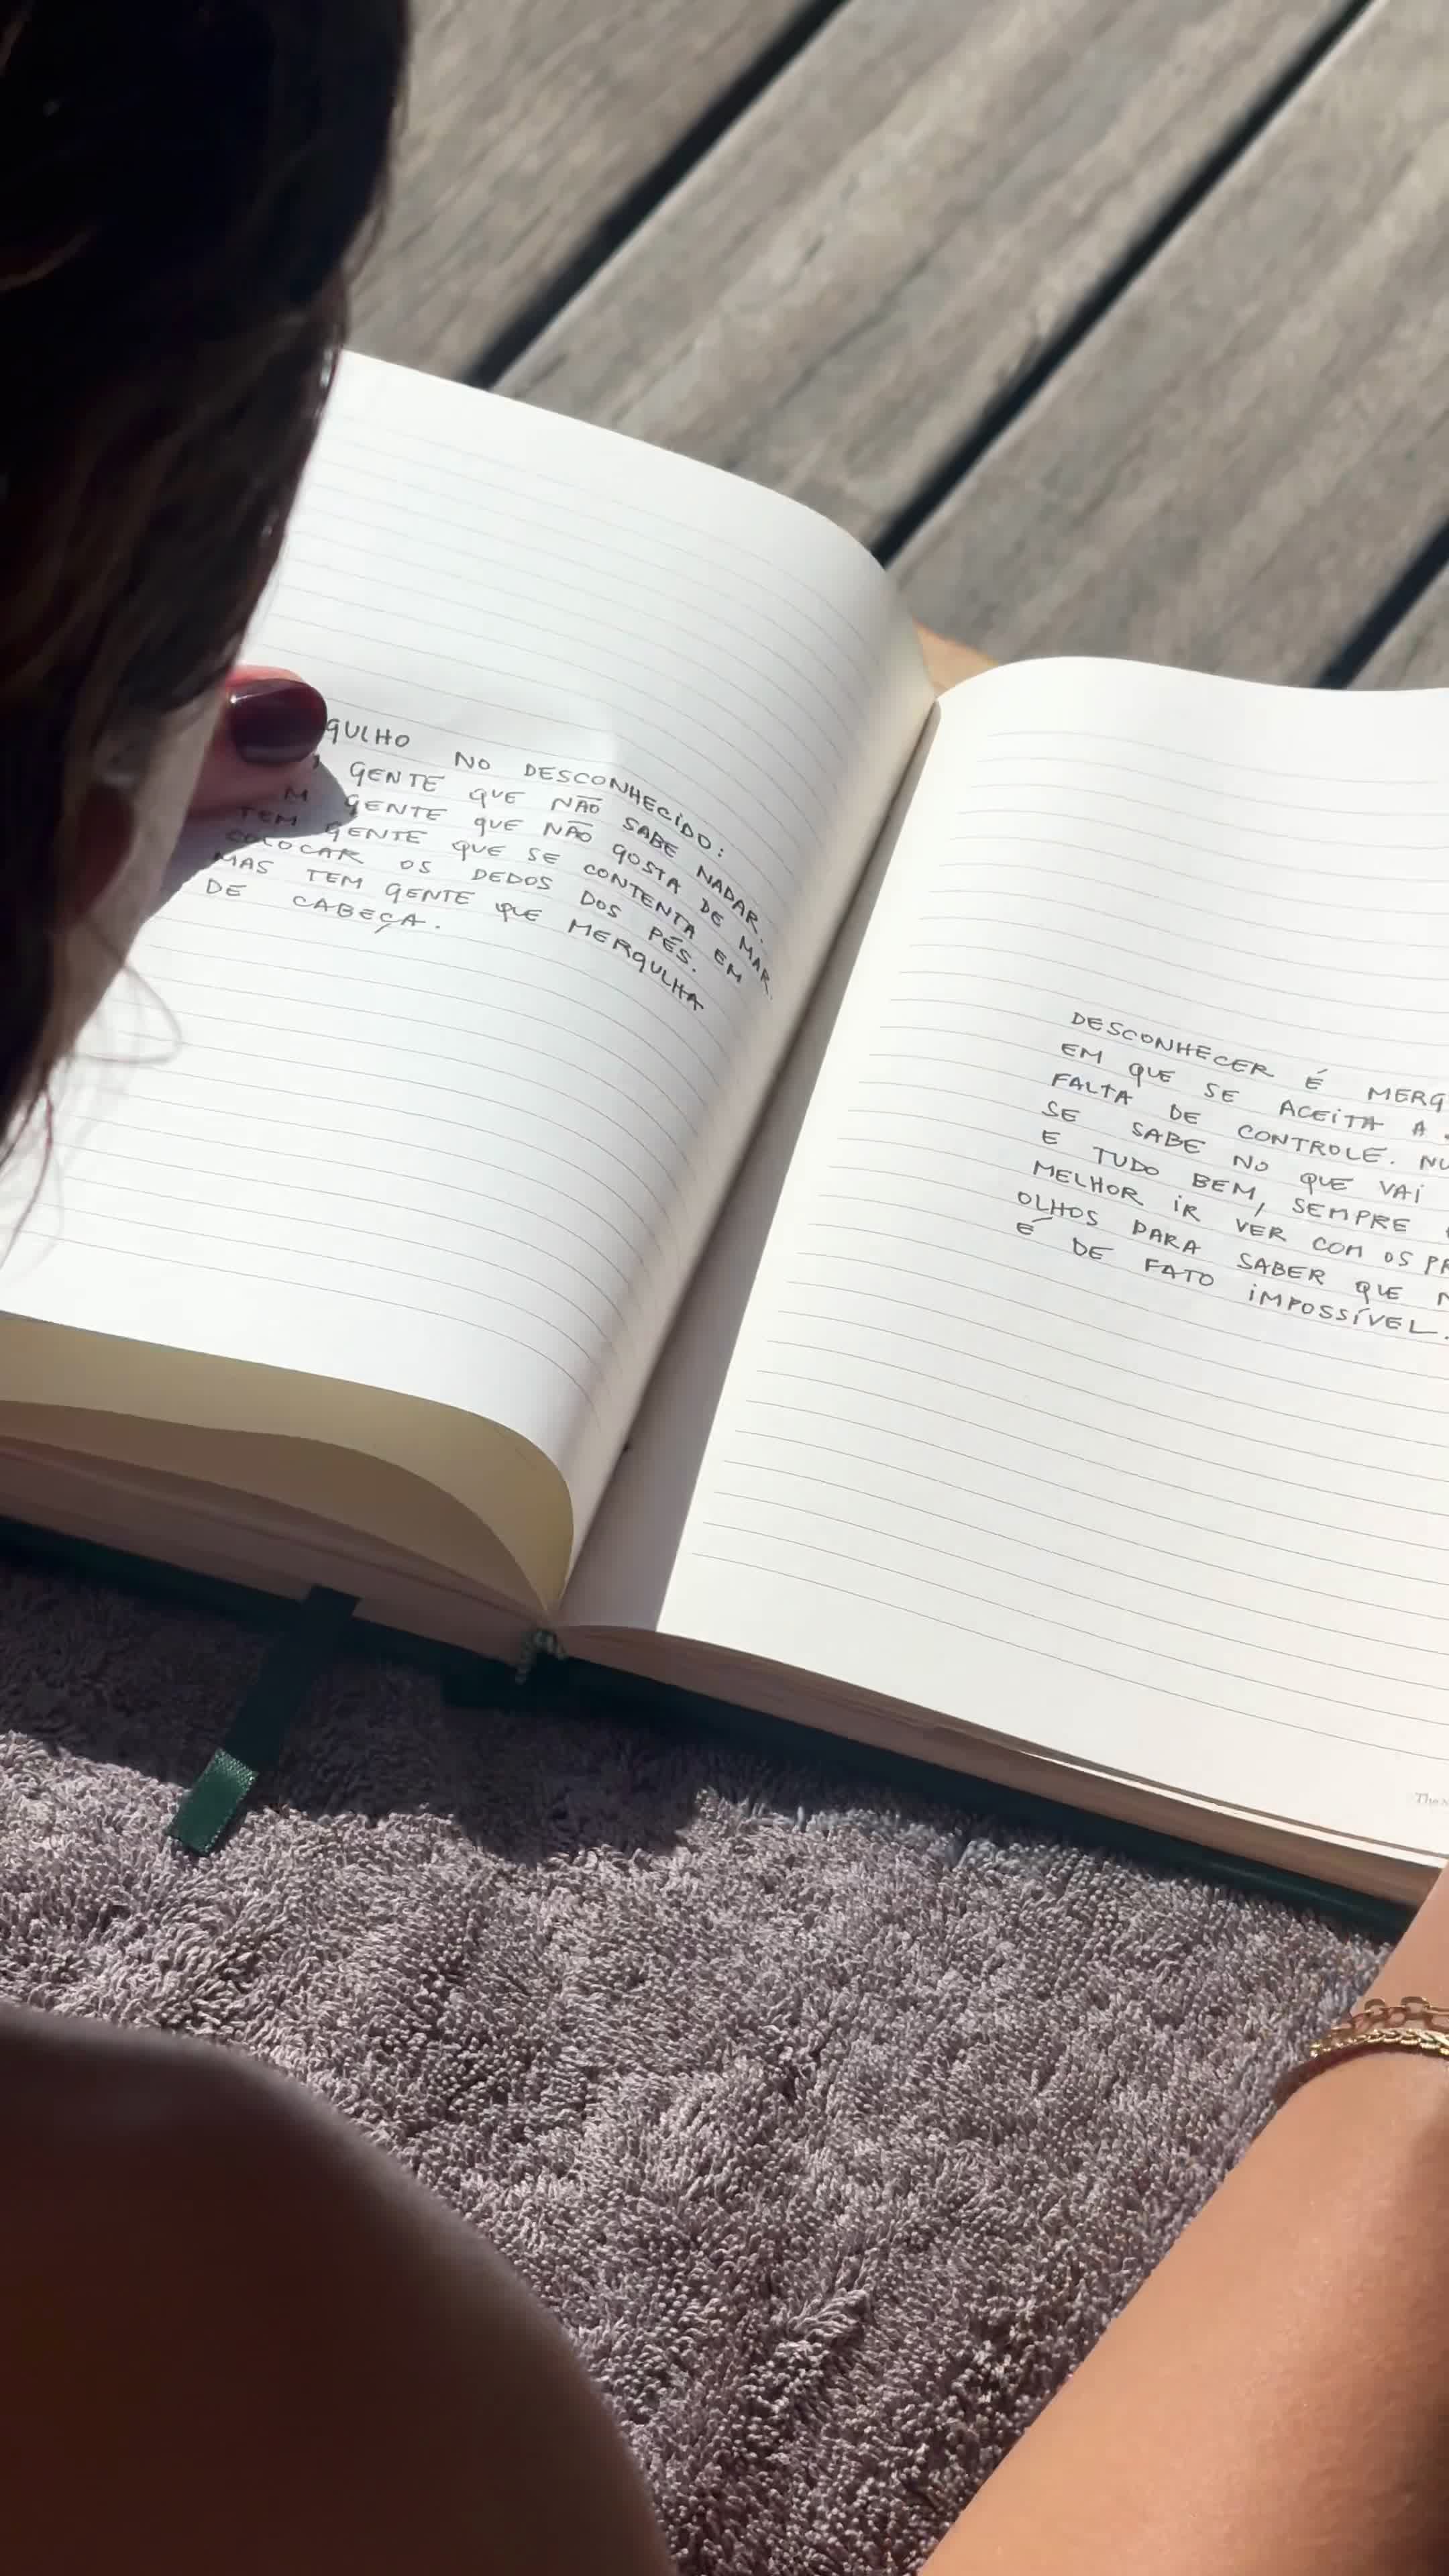 GULHO NO DESCONHECIDO:
GENTE QUE NÃO SABE NADAR.
M GENTE QUE NÃO GOSTA DE MAR.
TEM GENTE QUE SE CONTENTA EM
COLOCAR OS DEDOS DOS PÉS.
MAS TEM GENTE QUE MERGULHA
DE CABEÇA.
DESCONHECER É MERG
EM QUE SE ACEITA A
FALTA DE CONTROLE. NU
SE SABE NO QUE VAI
E TUDO BEM, SEMPRE
MELHOR IR VER COM OS PR
OLHOS PARA SABER QUE N
É DE FATO IMPOSSÍVEL.
The